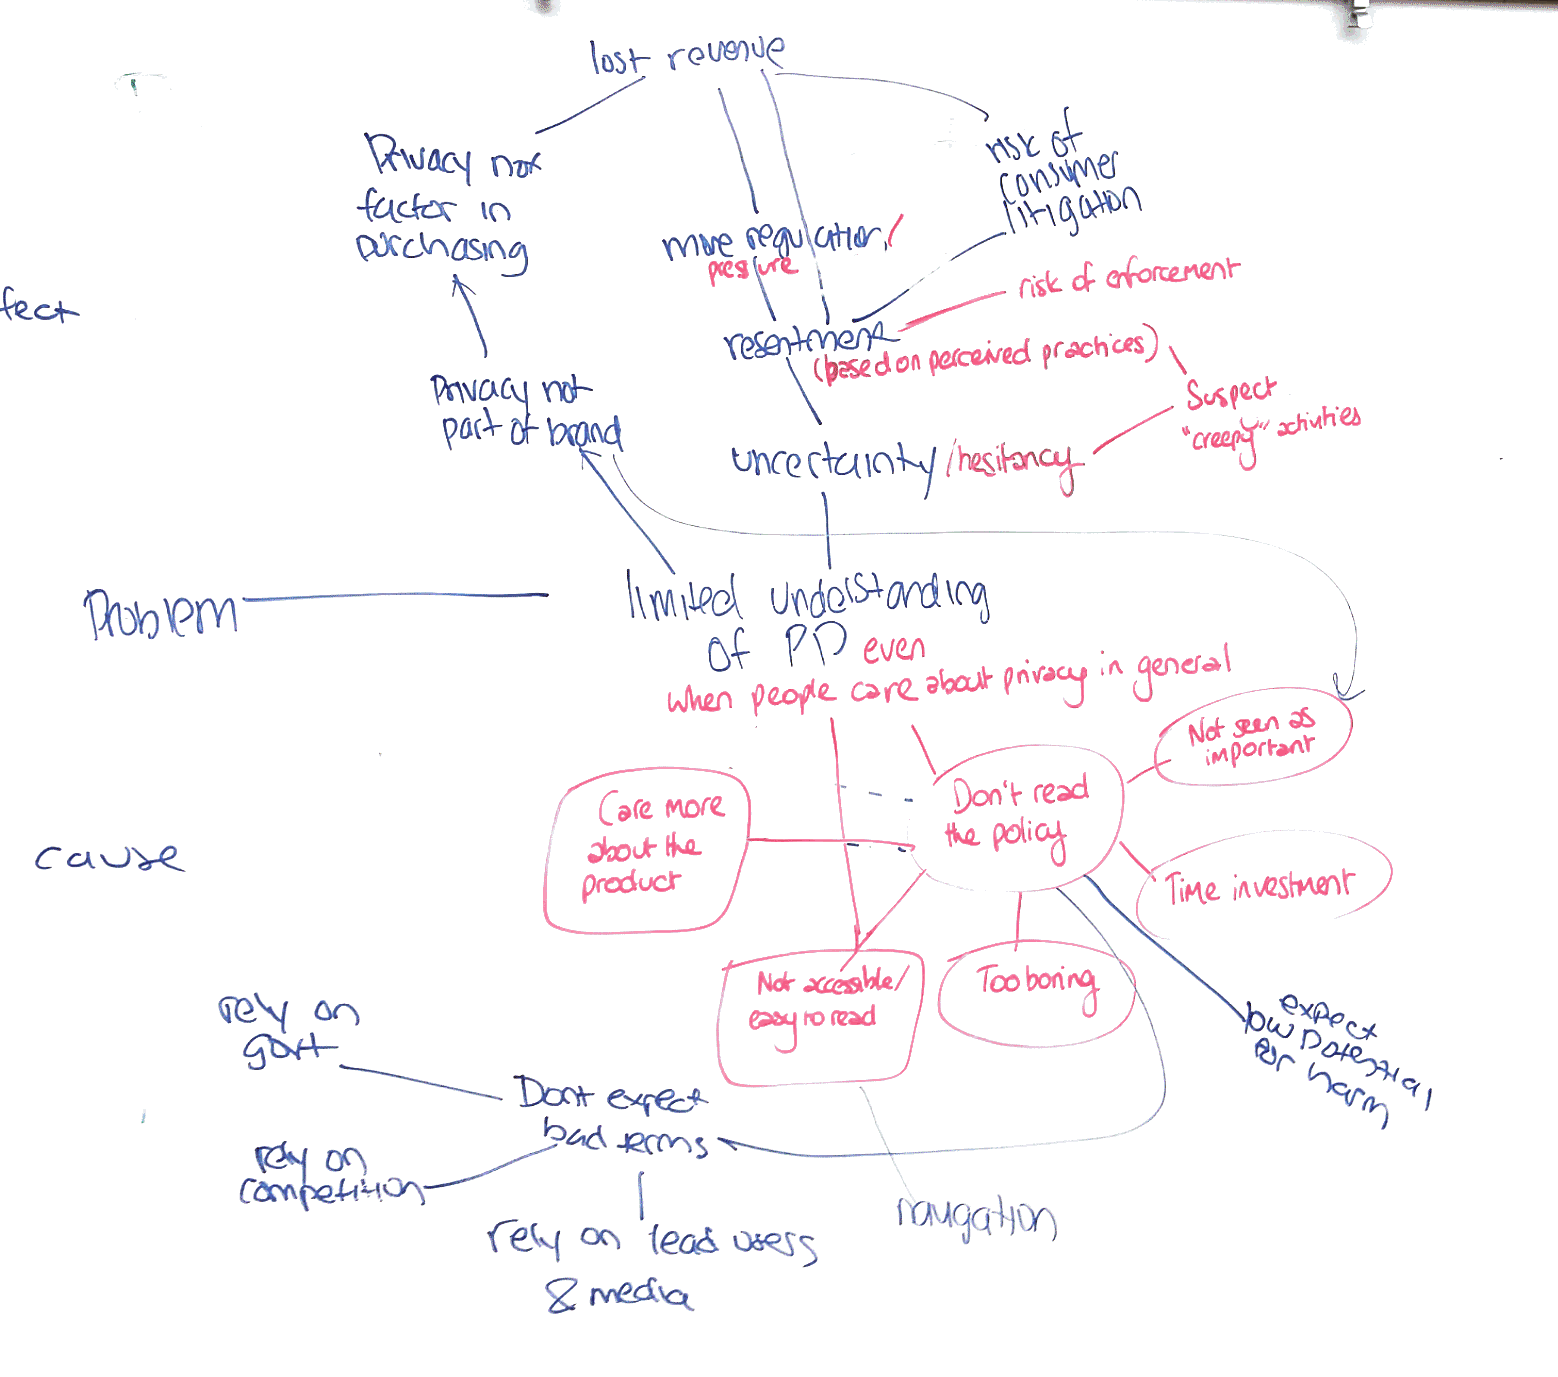 lost revenue
Privacy not
factor in
purchasing
risk of
consumer
litigation
more regulation/
pressure
fect
risk of enforcement
resentment
(based on perceived practices)
Privacy not
part of brand
Suspect
"creepy" activities
uncertainty/hesitancy
Problem
limited understanding
of PP even
when people care about privacy in general
Not seen as
important
Don't read
the policy
Care more
about the
product
cause
Time investment
Not accessible/
easy to read
Too boring
expect
low potential
for harm
rely on
govt
Dont expect
bad terms
rely on
competition
rely on lead users
& media
navigation